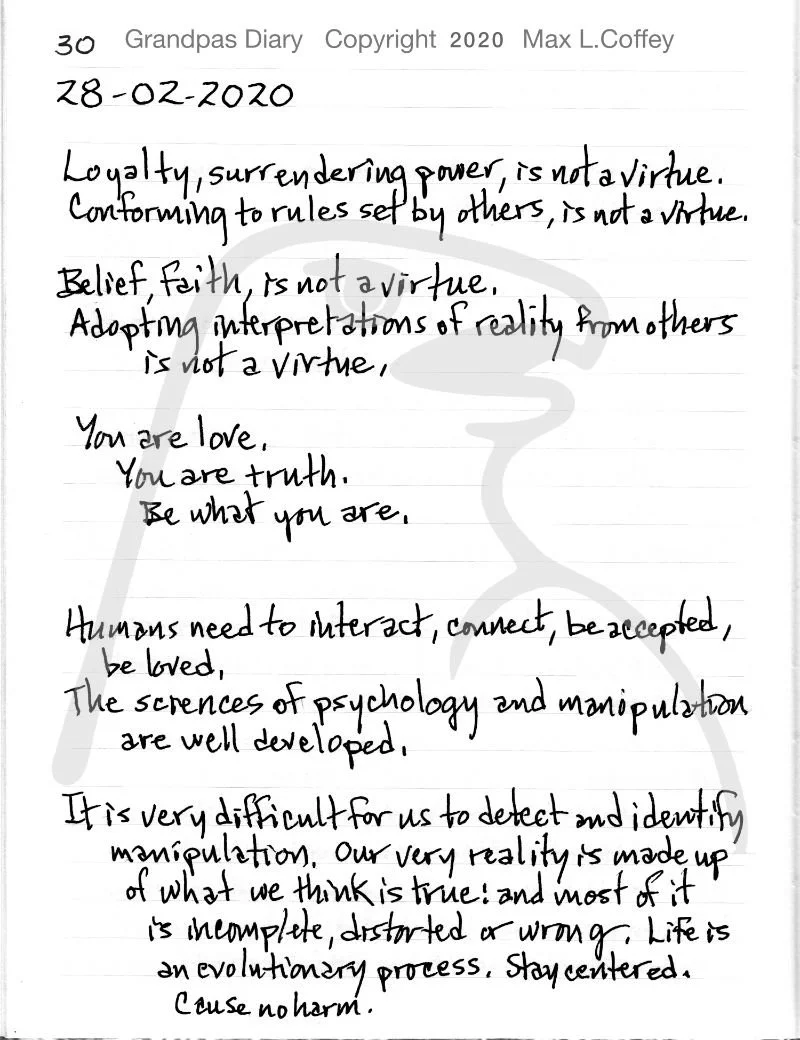 30 Grandpas Diary Copyright 2020 Max L.Coffey
28-02-2020
Loyalty, surrendering power, is not a virtue.
Conforming to rules set by others, is not a virtue.
Belief, faith, is not a virtue.
Adopting interpretations of reality from others
is not a virtue,
You are love.
You are truth.
Be what you are.
Humans need to interact, connect, be accepted,
be loved,
The sciences of psychology and manipulation
are well developed.
It is very difficult for us to detect and identify
manipulation. Our very reality is made up
of what we think is true! and most of it
is incomplete, distorted or wrong. Life is
an evolutionary process. Stay centered.
Cause no harm.